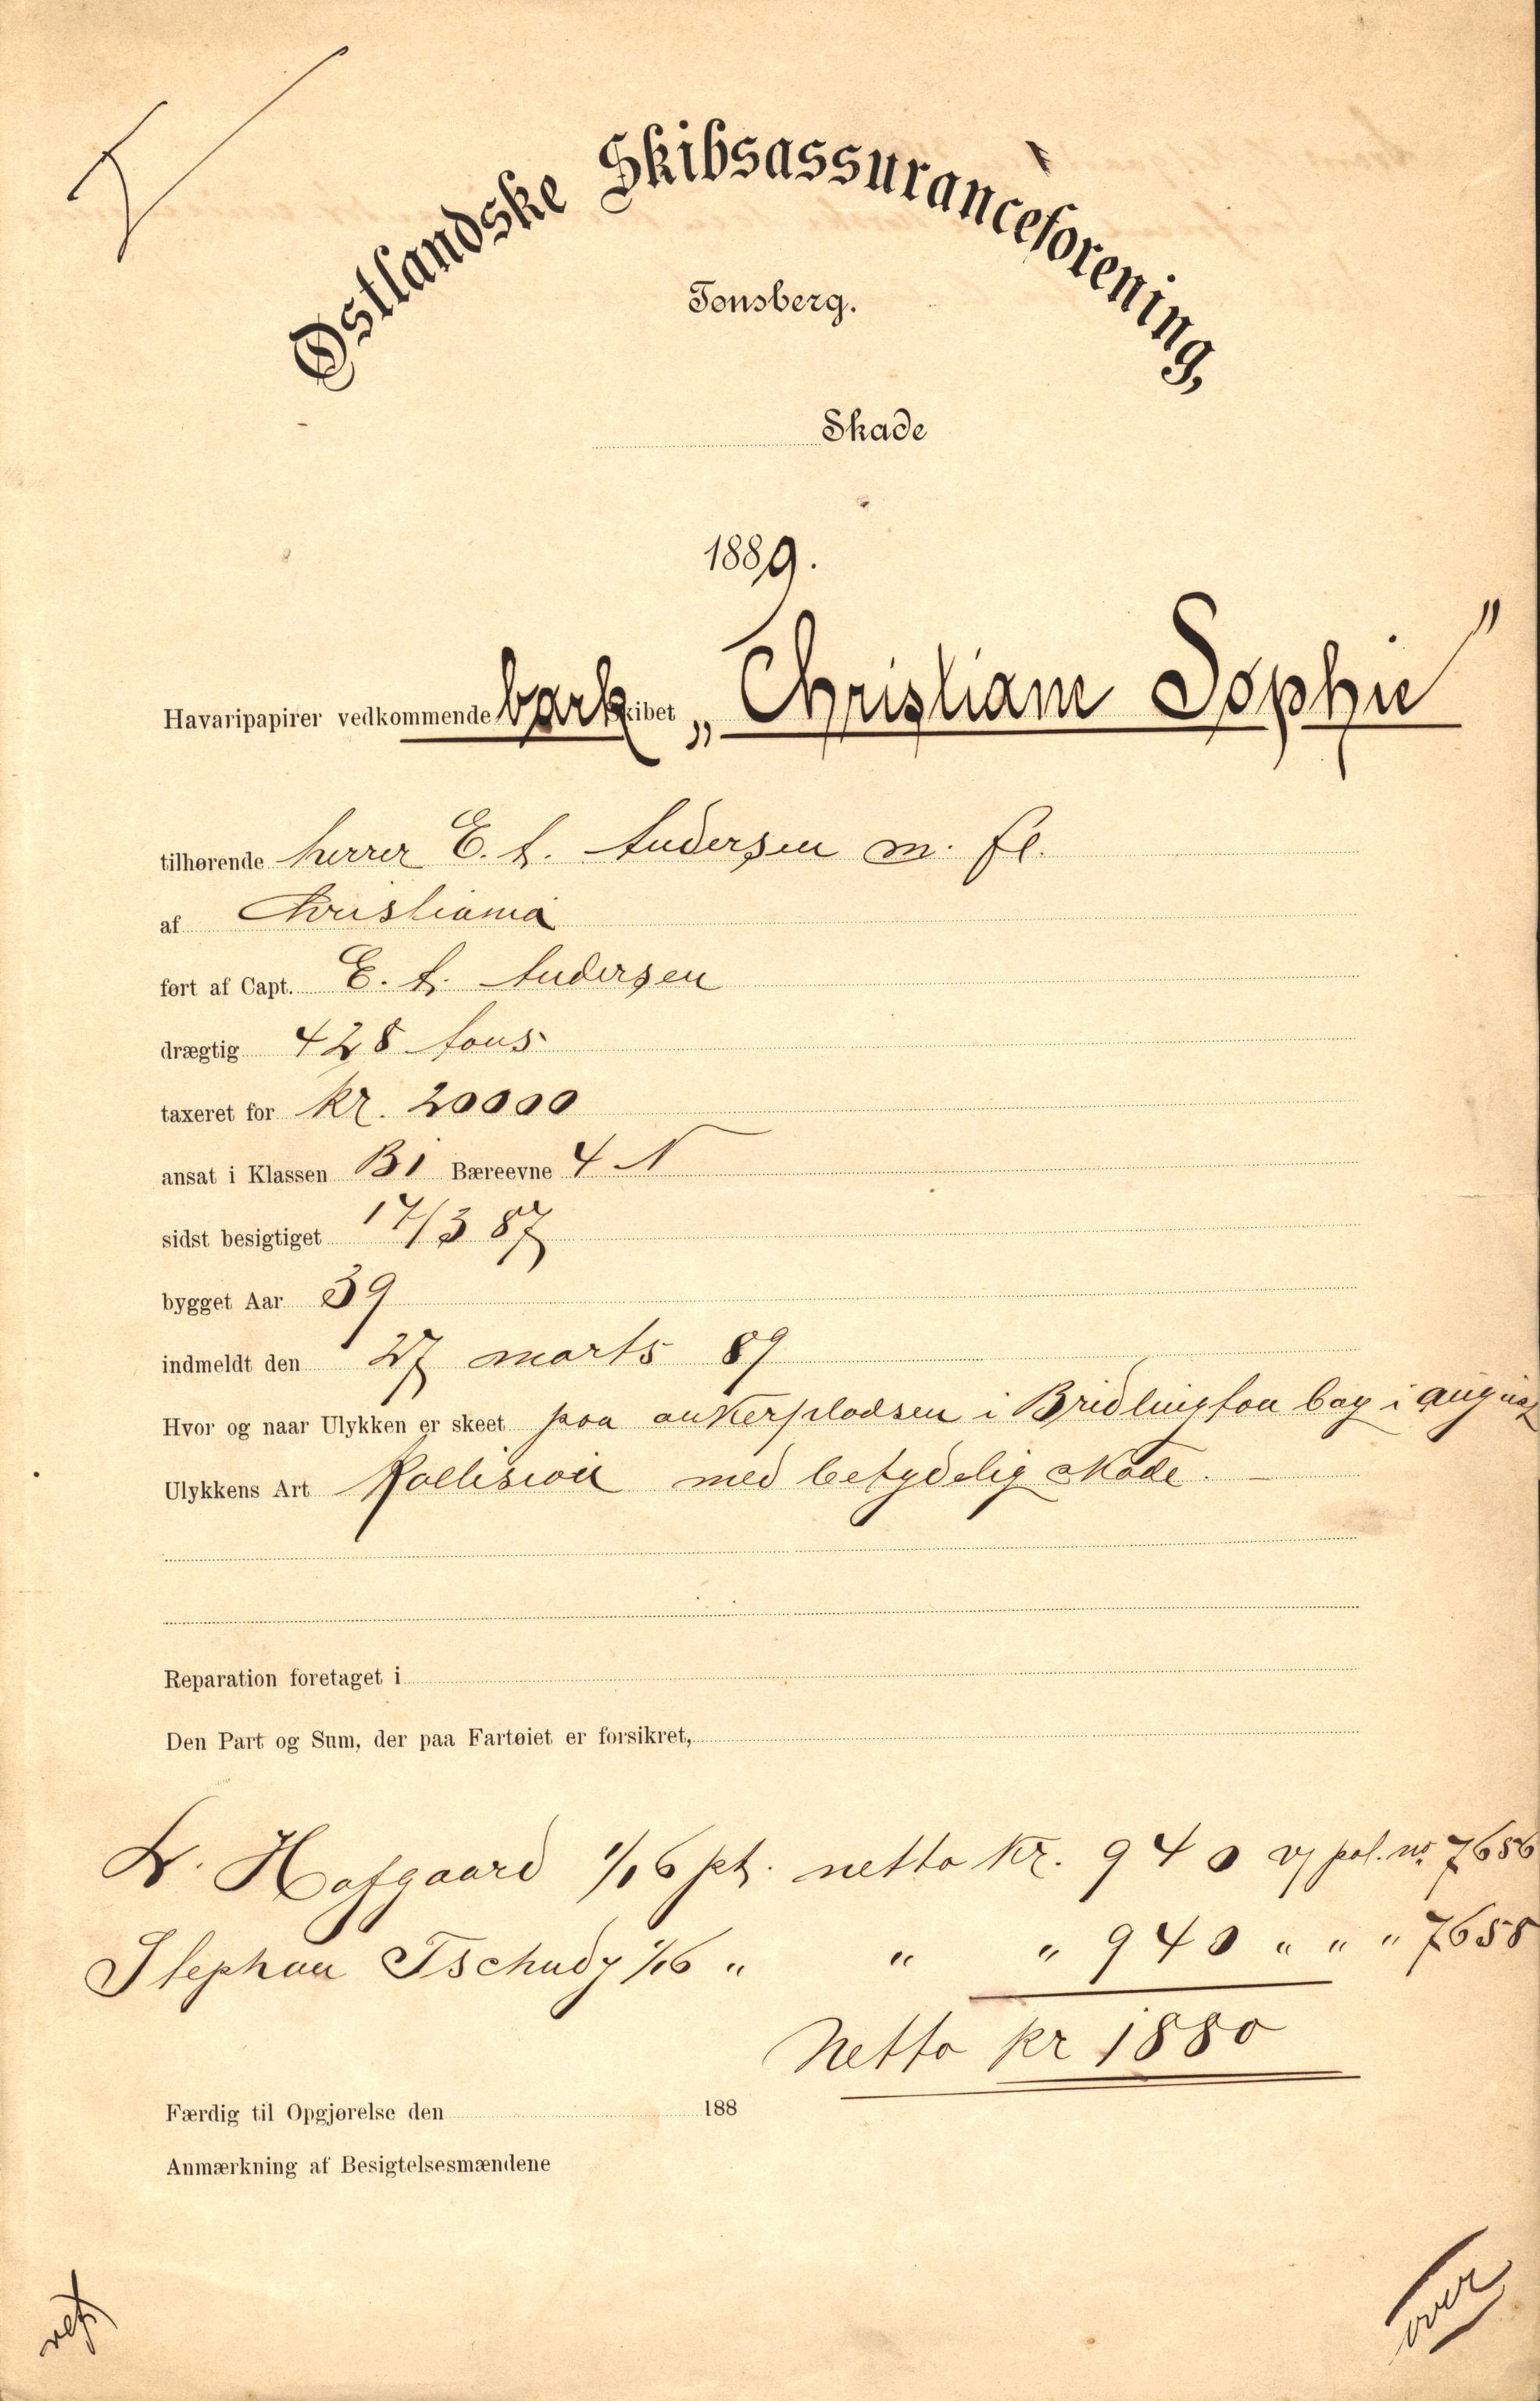 Østlandske Skibsassuranceforening,
Tønsberg.
Skade
1889.
Havaripapirer vedkommende bark skibet „Christiane Sophie"
tilhørende herrer E. A. Andersen m. fl.
af Christiania
ført af Capt. E. A. Andersen
drægtig 428 tons
taxeret for kr. 20000
ansat i Klassen B1 Bæreevne 4 N
sidst besigtiget 17/3 87
bygget Aar 39
indmeldt den 27 marts 89
Hvor og naar Ulykken er skeet paa ankerpladsen i Bridlington bay i august
Ulykkens Art Kollision med betydelig skade. —
Reparation foretaget i
Den Part og Sum, der paa Fartøiet er forsikret,
Hafgaard 1/16 pt. netto kr. 940 v/ pol. no. 7656
Stephan Tschudy 1/16 " " " 940 " " " 7658
Netto kr 1880
Færdig til Opgjørelse den 188
Anmærkning af Besigtelsesmændene
over